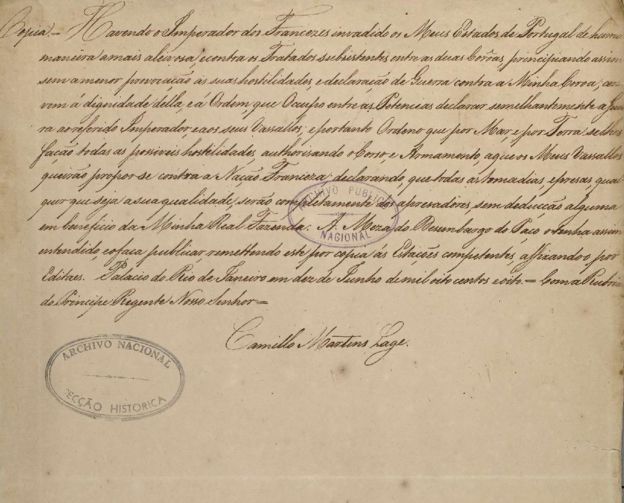 Copia = Havendo o Imperador dos Francezes invadido os Meus Estados de Portugal de huma
maneira a mais aleivosa, e contra os Tratados subsistentes entre as duas Corôas, principiando assim
sem a menor provocação as suas hostilidades, e declaração de Guerra contra a Minha Coroa; con-
vem á dignidade della, e á Ordem, que Occupo entre as Potencias declarar semelhantemente a Guer-
ra ao referido Imperador, e aos seus Vassallos; e portanto Ordeno que por Mar e por Terra se lhes
fação todas as possiveis hostilidades, authorisando o Corso, e Armamento a que os Meus Vassallos
queirão propor-se contra a Nação Franceza; declarando, que todas as tomadias, e presas qual-
quer que seja a sua qualidade, serão completamente dos apresadores, sem deducção alguma
em beneficio da Minha Real Fazenda. A Meza do Desembargo do Paço o tenha assim
entendido, e o faça publicar, remettendo este por copia ás Estações competentes, e affixando-o por
Editaes. Palacio do Rio de Janeiro em dez de Junho de mil oito centos e oito. = Com a Rubrica
do Principe Regente Nosso Senhor =
Camillo Martins Lage.
ARCHIVO PUBLICO
NACIONAL
ARCHIVO NACIONAL
SECÇÃO HISTORICA